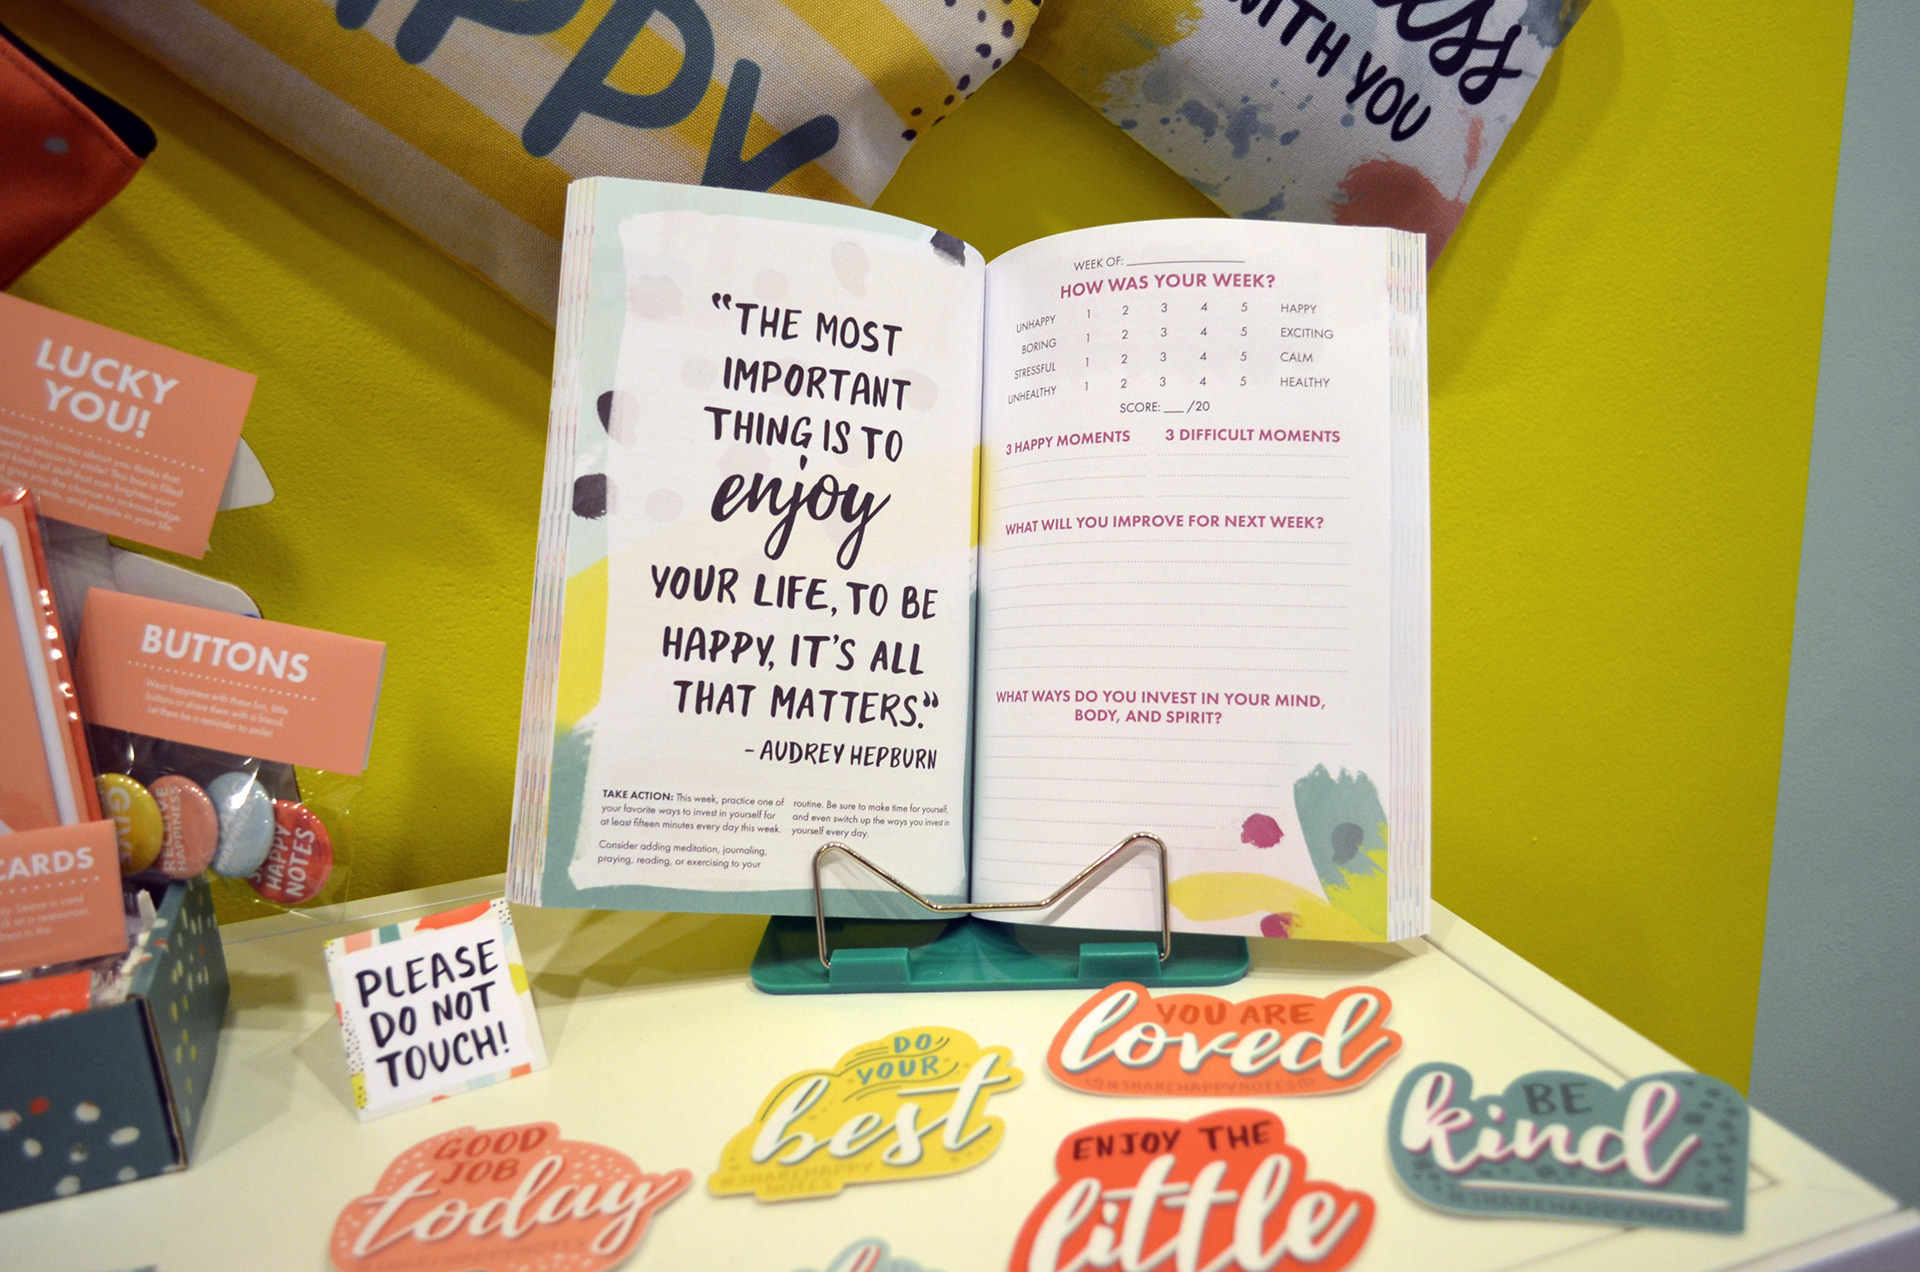 PPY
ess
WITH YOU
LUCKY
YOU!
BUTTONS
Wear happiness with these fun, little
buttons or share them with a friend.
Let them be a reminder to smile!
HAPPY
NOTES
CARDS
PLEASE
DO NOT
TOUCH!
“THE MOST
IMPORTANT
THING IS TO
enjoy
YOUR LIFE, TO BE
HAPPY, IT'S ALL
THAT MATTERS.”
- AUDREY HEPBURN
TAKE ACTION: This week, practice one of
your favorite ways to invest in yourself for
at least fifteen minutes every day this week.
Consider adding meditation, journaling,
praying, reading, or exercising to your
routine. Be sure to make time for yourself,
and even switch up the ways you invest in
yourself every day.
WEEK OF:
HOW WAS YOUR WEEK?
UNHAPPY 1 2 3 4 5 HAPPY
BORING 1 2 3 4 5 EXCITING
STRESSFUL 1 2 3 4 5 CALM
UNHEALTHY 1 2 3 4 5 HEALTHY
SCORE: ___ /20
3 HAPPY MOMENTS 3 DIFFICULT MOMENTS
WHAT WILL YOU IMPROVE FOR NEXT WEEK?
WHAT WAYS DO YOU INVEST IN YOUR MIND,
BODY, AND SPIRIT?
GOOD
JOB
today
DO
YOUR
best
#SHAREHAPPY
NOTES
YOU ARE
loved
#SHAREHAPPYNOTES
ENJOY THE
little
BE
kind
#SHAREHAPPYNOTES